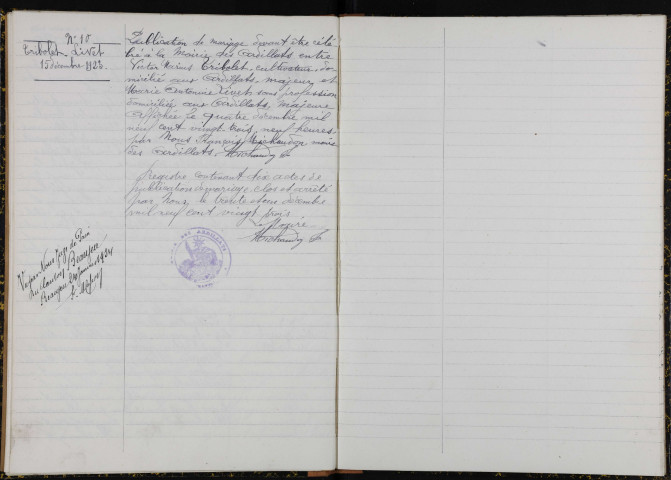 N° 10
Tribolet Livet
15 décembre 1923
Publication de mariage devant être célé
bré à la Mairie des Ardillats entre
Victor Marius Tribolet, cultivateur, do
micilié aux Ardillats, majeur, et
Marie Antonine Livet, sans profession
domiciliée aux Ardillats, majeure
Affichée le quatre décembre mil
neuf cent vingt trois, neuf heures,
par Nous François Michaudon maire
des Ardillats.
Registre contenant dix actes de
publication de mariage, clos et arrêté
par Nous, le trente et un décembre
mil neuf cent vingt trois
Le Maire
Vu par Nous Juge de Paix
du canton de Beaujeu
Beaujeu janvier 1924
DES ARDILLATS